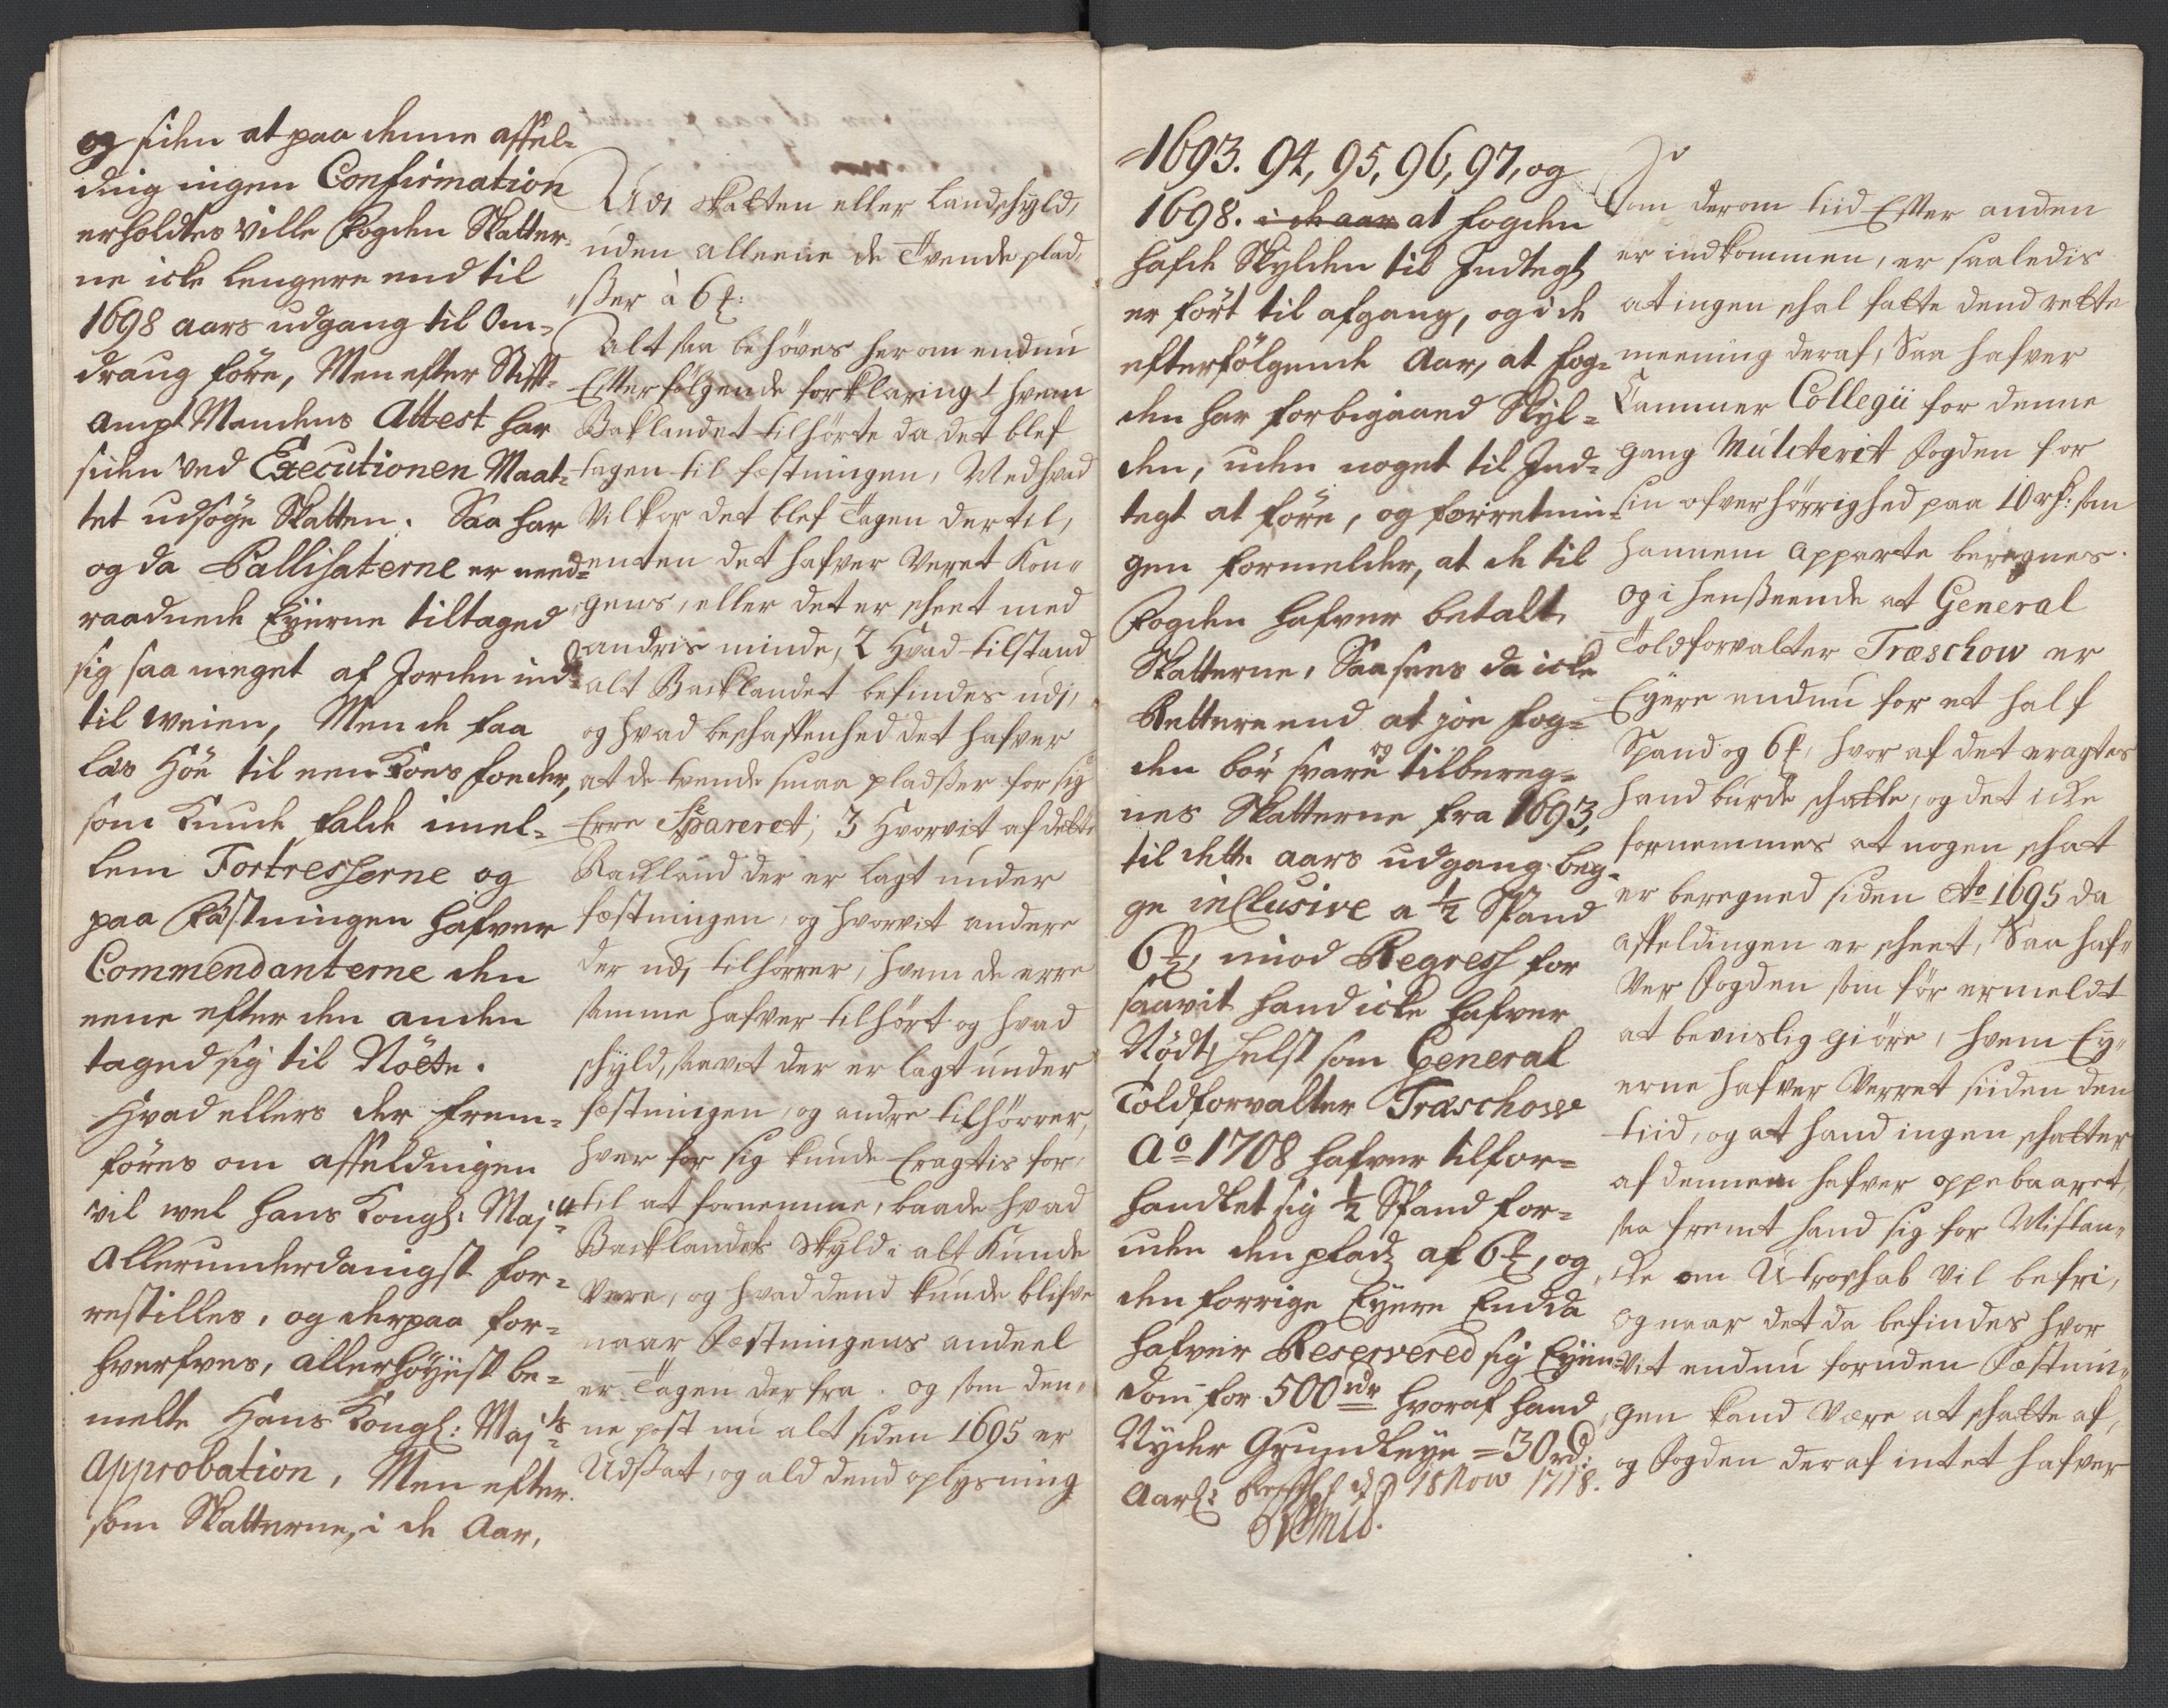 og siden at paa denne affel-
ding ingen Confirmation
erholdtes ville Fogden Skatter-
ne icke lengere end til
1698 aars udgang til Om-
draug føre, Men efter Stift-
ampt Mandens Attest har
siden ved Executionen Maat-
tet udsøge Skatten. Saa har
og da Pallisaterne er need-
raadnede Eyerne tiltaged
sig saa meget af Jorden ind
til weien, Men de faa
læs Høe til nene Koes foeder,
som Kunde falde imel-
lem Fortresserne og
paa Fæstningen hafver
Commendanterne den
eene efter den anden
taged sig til Nøtte.
Hvad ellers der frem-
føres om affeldingen
vil wel hans Kongl: Maj:tt
Allerunderdanigst for-
restilles, og derpaa for-
hverfves, allerhøyest be-
melte Hans Kongl: Maj:ts
Approbation, Men efter
som Skatterne, i de Aar,
Udj skatten eller Landschyld,
uden alleene de Tvende plad-
ßer à 6 f:
Alt saa behøves her om endnu
Efterfølgende forklaring 1 hvem
Baklandet tilhørte da det blef
tagen til fæstningen, Med hvad
Vilkor det blef Tagen dertil,
enten det hafver Veret Kon-
gens, eller det er scheet med
andris minde, 2 Hvad tilstand
alt Backlandet befindes udj,
og hvad beschaffenhed det hafver
at de tvende smaa pladßer for sig
Erre Separeret; 3 Hvorvit af dette
Backland der er lagt under
fæstningen, og hvorvit andere
der udj tilhørrer, hvem de erre
samme hafver tilhørt og hvad
schyld, saavit der er lagt under
fæstningen, og andre tilhørrer,
hver for sig kunde Eragtis for,
til at fornemme, baade hvad
Backlandets Skyld i alt Kunde
Vere, og hvad dend kunde blifve
naar Fæstningens andeel
er Tagen der fra. og som den-
ne post nu alt siden 1695 er
Udßat, og ald dend oplysning
1693. 94, 95, 96, 97, og
1698. i de aar at fogden
hafde Skylden til Indtegt
er ført til afgang, og i de
efterfølgende Aar, at Fog-
den har forbigaaed Skyl-
den, uden noget til Ind-
tegt at føre, og forretnin-
gen formelder, at de til
Fogden hafver betalt
Skatterne, Saa sees da icke
Rettere end at joe Fog-
den bør svare og tilbereg-
nes Skatterne fra 1693,
til dette aars udgang beg-
ge inclusive a ½ Spand
6 f, mod Regress for
saavit hand icke hafver
Nødt, helst som General
Toldforvalter Træschow
Ao 1708 hafver tilfor-
handlet sig ½ Spand for-
uden den plads af 6 f, og
den forrige Eyere Endda
hafver Reservered sig Eyen-
dom for 500 rdr hvoraf hand
Nyder Grundleye = 30 rd:
Aarl: 18 Nov 1718.
som derom tiid Efter anden
er indkommen, er saaledis
at ingen schal fatte dend rette
meening deraf, Saa hafver
Cammer Collegii for denne
gang Mulcterit Fogden for
sin ofverhørrighed paa 10 rd: som
hannem apparte beregnes.
og i henßeende at General
Toldforvalter Træschow er
Eyere endnu for et half
Spand og 6 f, hvor af det eragtes
hand burde schatte, og det icke
fornemmes at nogen schat
er beregned siden Ao 1695 da
affeldingen er scheet, Saa haf-
ver Fogden som før ermeldt
at beviislig giøre, hvem Ey-
erne hafver Verret siiden den
tiid, og at hand ingen schatter
af dennem hafver oppebaaret,
saa fremt hand sig for Mistan-
de om Utroschab vil befri,
og naar det da befindes hvor
vit endnu foruden Fæstnin-
gen kand være at schatte af,
og Fogden deraf intet hafver